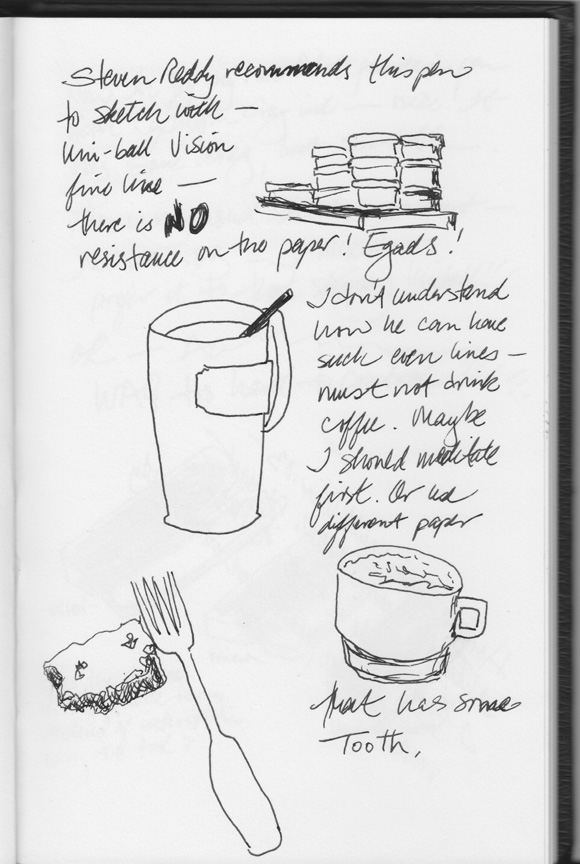 Steven Reddy recommends this pen
to sketch with —
Uni-ball Vision
fine line —
there is NO
resistance on the paper! Egads!
I don't understand
how he can have
such even lines —
must not drink
coffee. Maybe
I should meditate
first. Or use
different paper
that has some
Tooth.